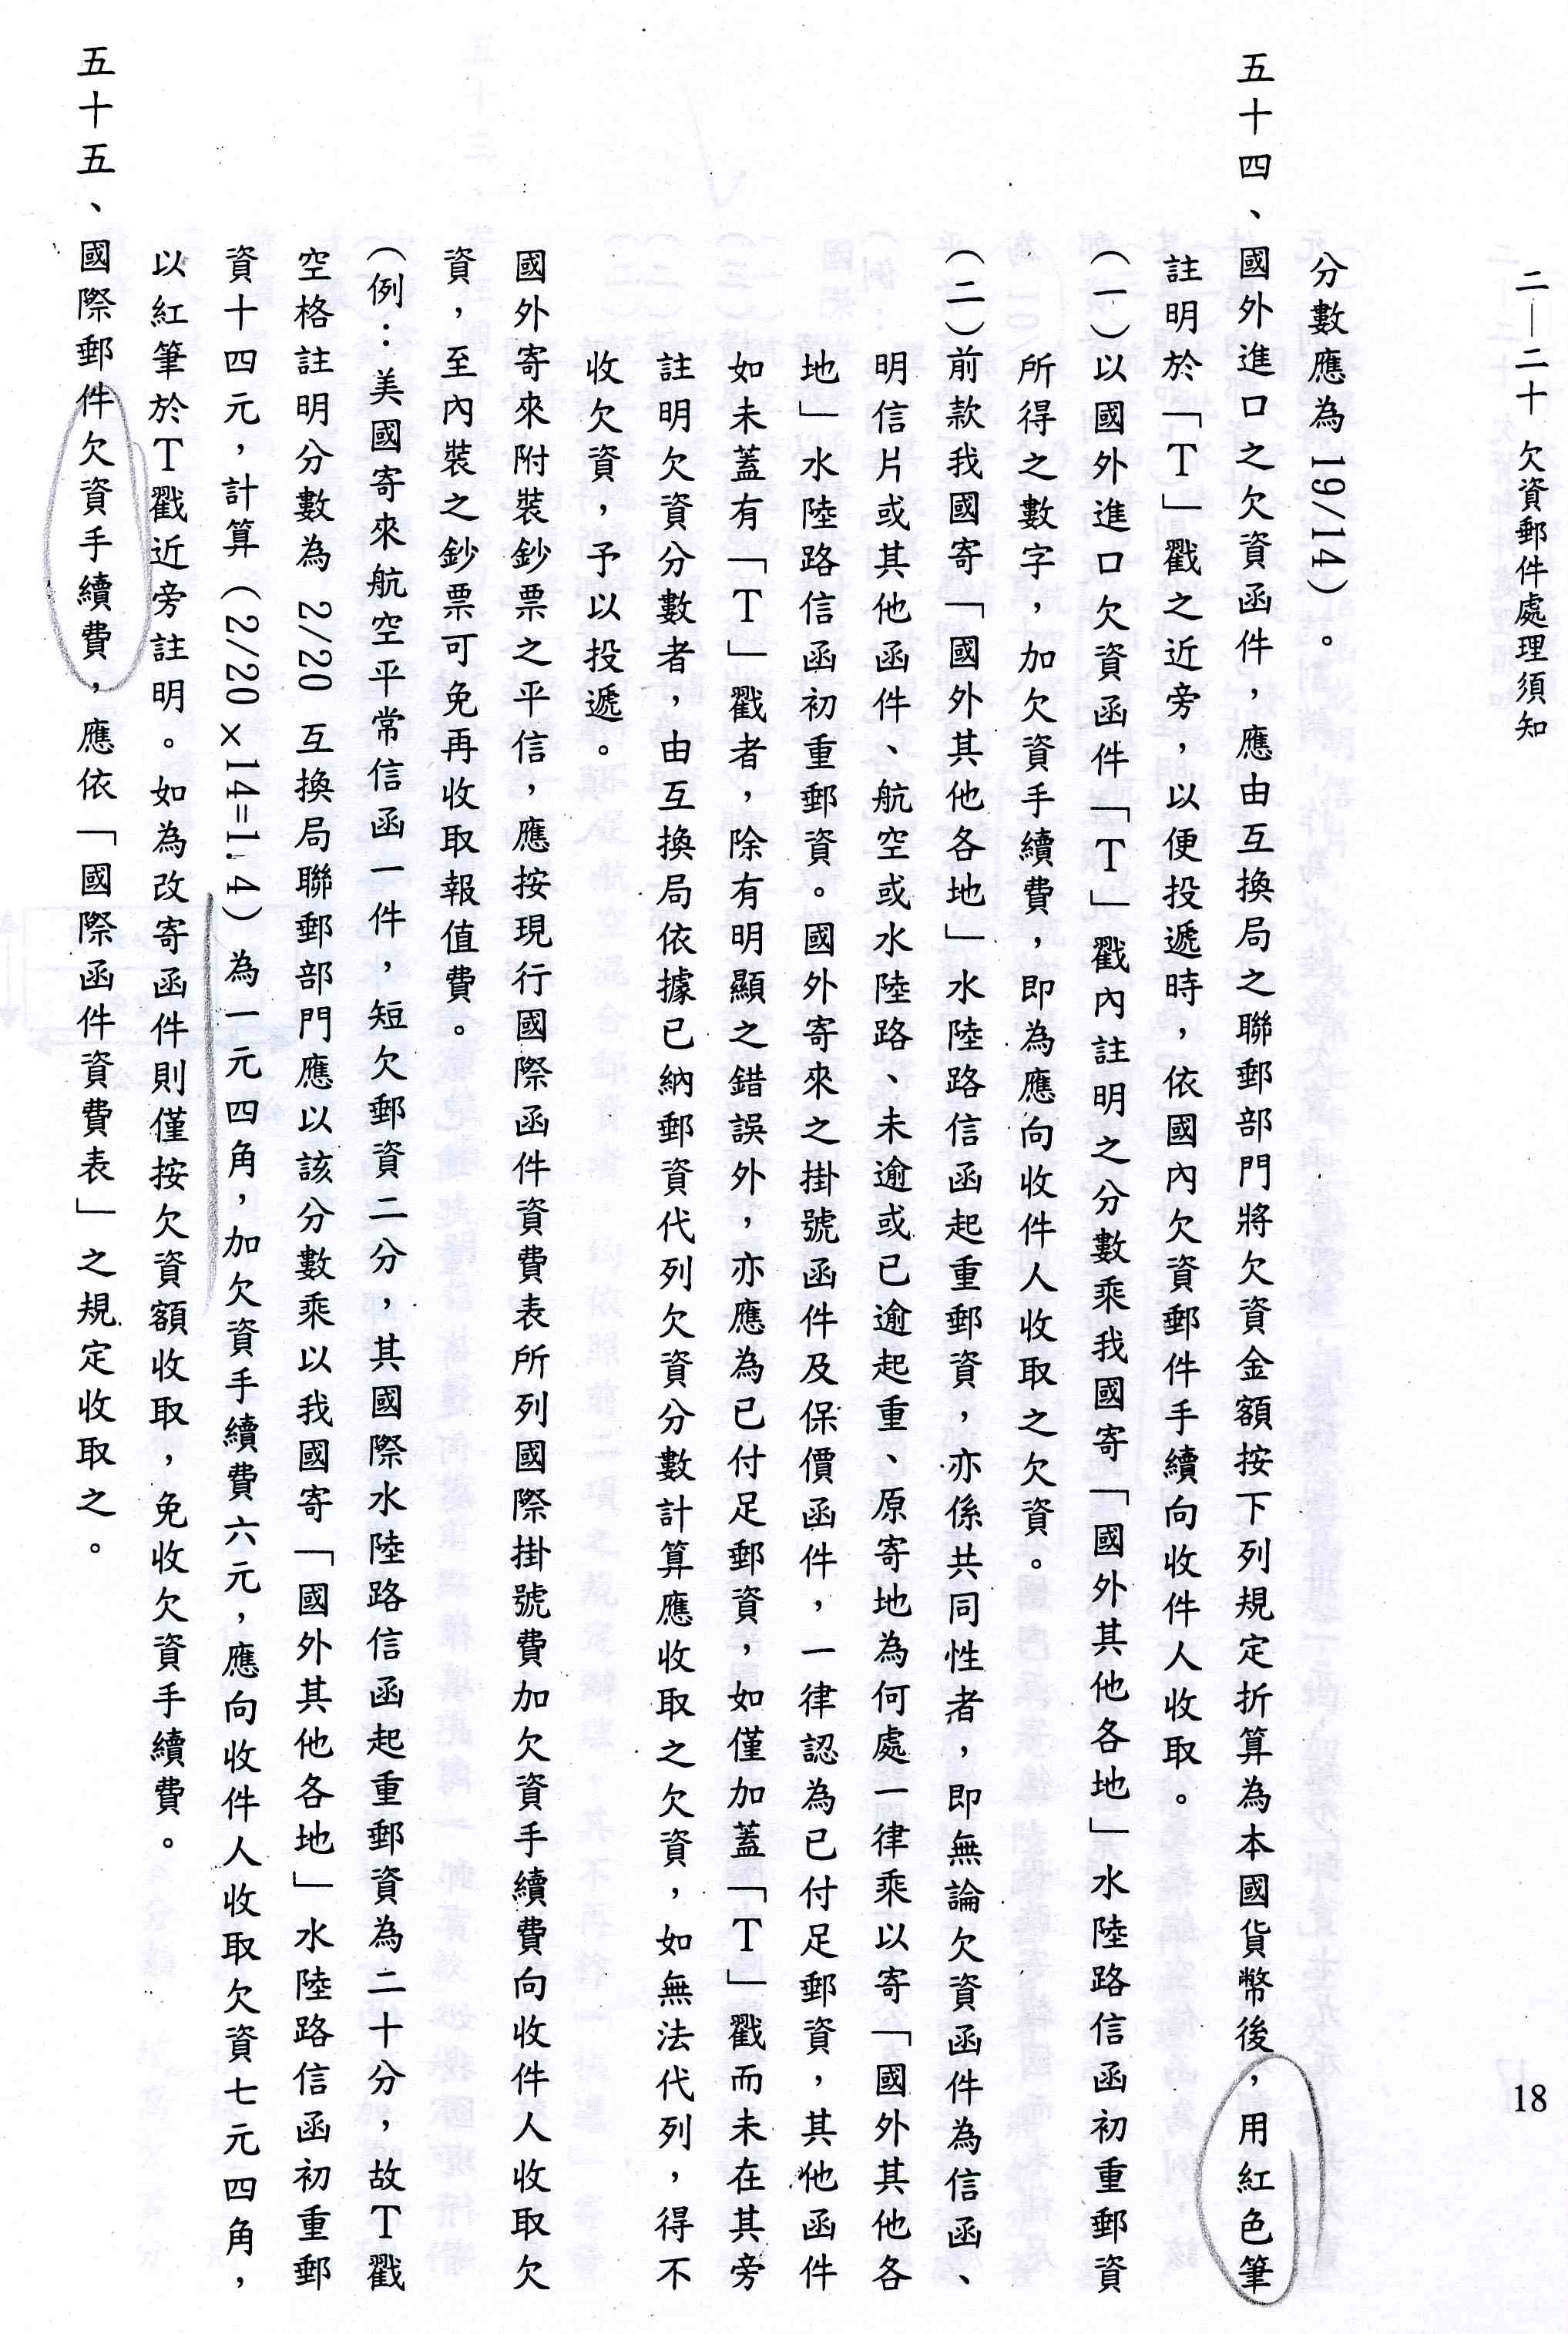 二—二十 欠資郵件處理須知
18
分數應為 19/14)。
五十四、國外進口之欠資函件，應由互換局之聯郵部門將欠資金額按下列規定折算為本國貨幣後，用紅色筆
註明於「T」戳之近旁，以便投遞時，依國內欠資郵件手續向收件人收取。
(一)以國外進口欠資函件「T」戳內註明之分數乘我國寄「國外其他各地」水陸路信函初重郵資
所得之數字，加欠資手續費，即為應向收件人收取之欠資。
(二)前款我國寄「國外其他各地」水陸路信函起重郵資，亦係共同性者，即無論欠資函件為信函、
明信片或其他函件、航空或水陸路、未逾或已逾起重、原寄地為何處一律乘以寄「國外其他各
地」水陸路信函初重郵資。國外寄來之掛號函件及保價函件，一律認為已付足郵資，其他函件
如未蓋有「T」戳者，除有明顯之錯誤外，亦應為已付足郵資，如僅加蓋「T」戳而未在其旁
註明欠資分數者，由互換局依據已納郵資代列欠資分數計算應收取之欠資，如無法代列，得不
收欠資，予以投遞。
國外寄來附裝鈔票之平信，應按現行國際函件資費表所列國際掛號費加欠資手續費向收件人收取欠
資，至內裝之鈔票可免再收取報值費。
(例：美國寄來航空平常信函一件，短欠郵資二分，其國際水陸路信函起重郵資為二十分，故T戳
空格註明分數為 2/20 互換局聯郵部門應以該分數乘以我國寄「國外其他各地」水陸路信函初重郵
資十四元，計算(2/20×14=1.4)為一元四角，加欠資手續費六元，應向收件人收取欠資七元四角，
以紅筆於T戳近旁註明。如為改寄函件則僅按欠資額收取，免收欠資手續費。
五十五、國際郵件欠資手續費，應依「國際函件資費表」之規定收取之。